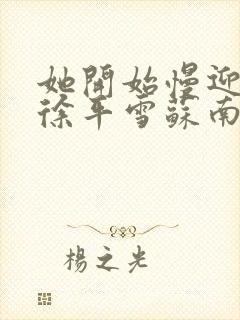 她開始慢迎
徐平雪蘇南
楊之光